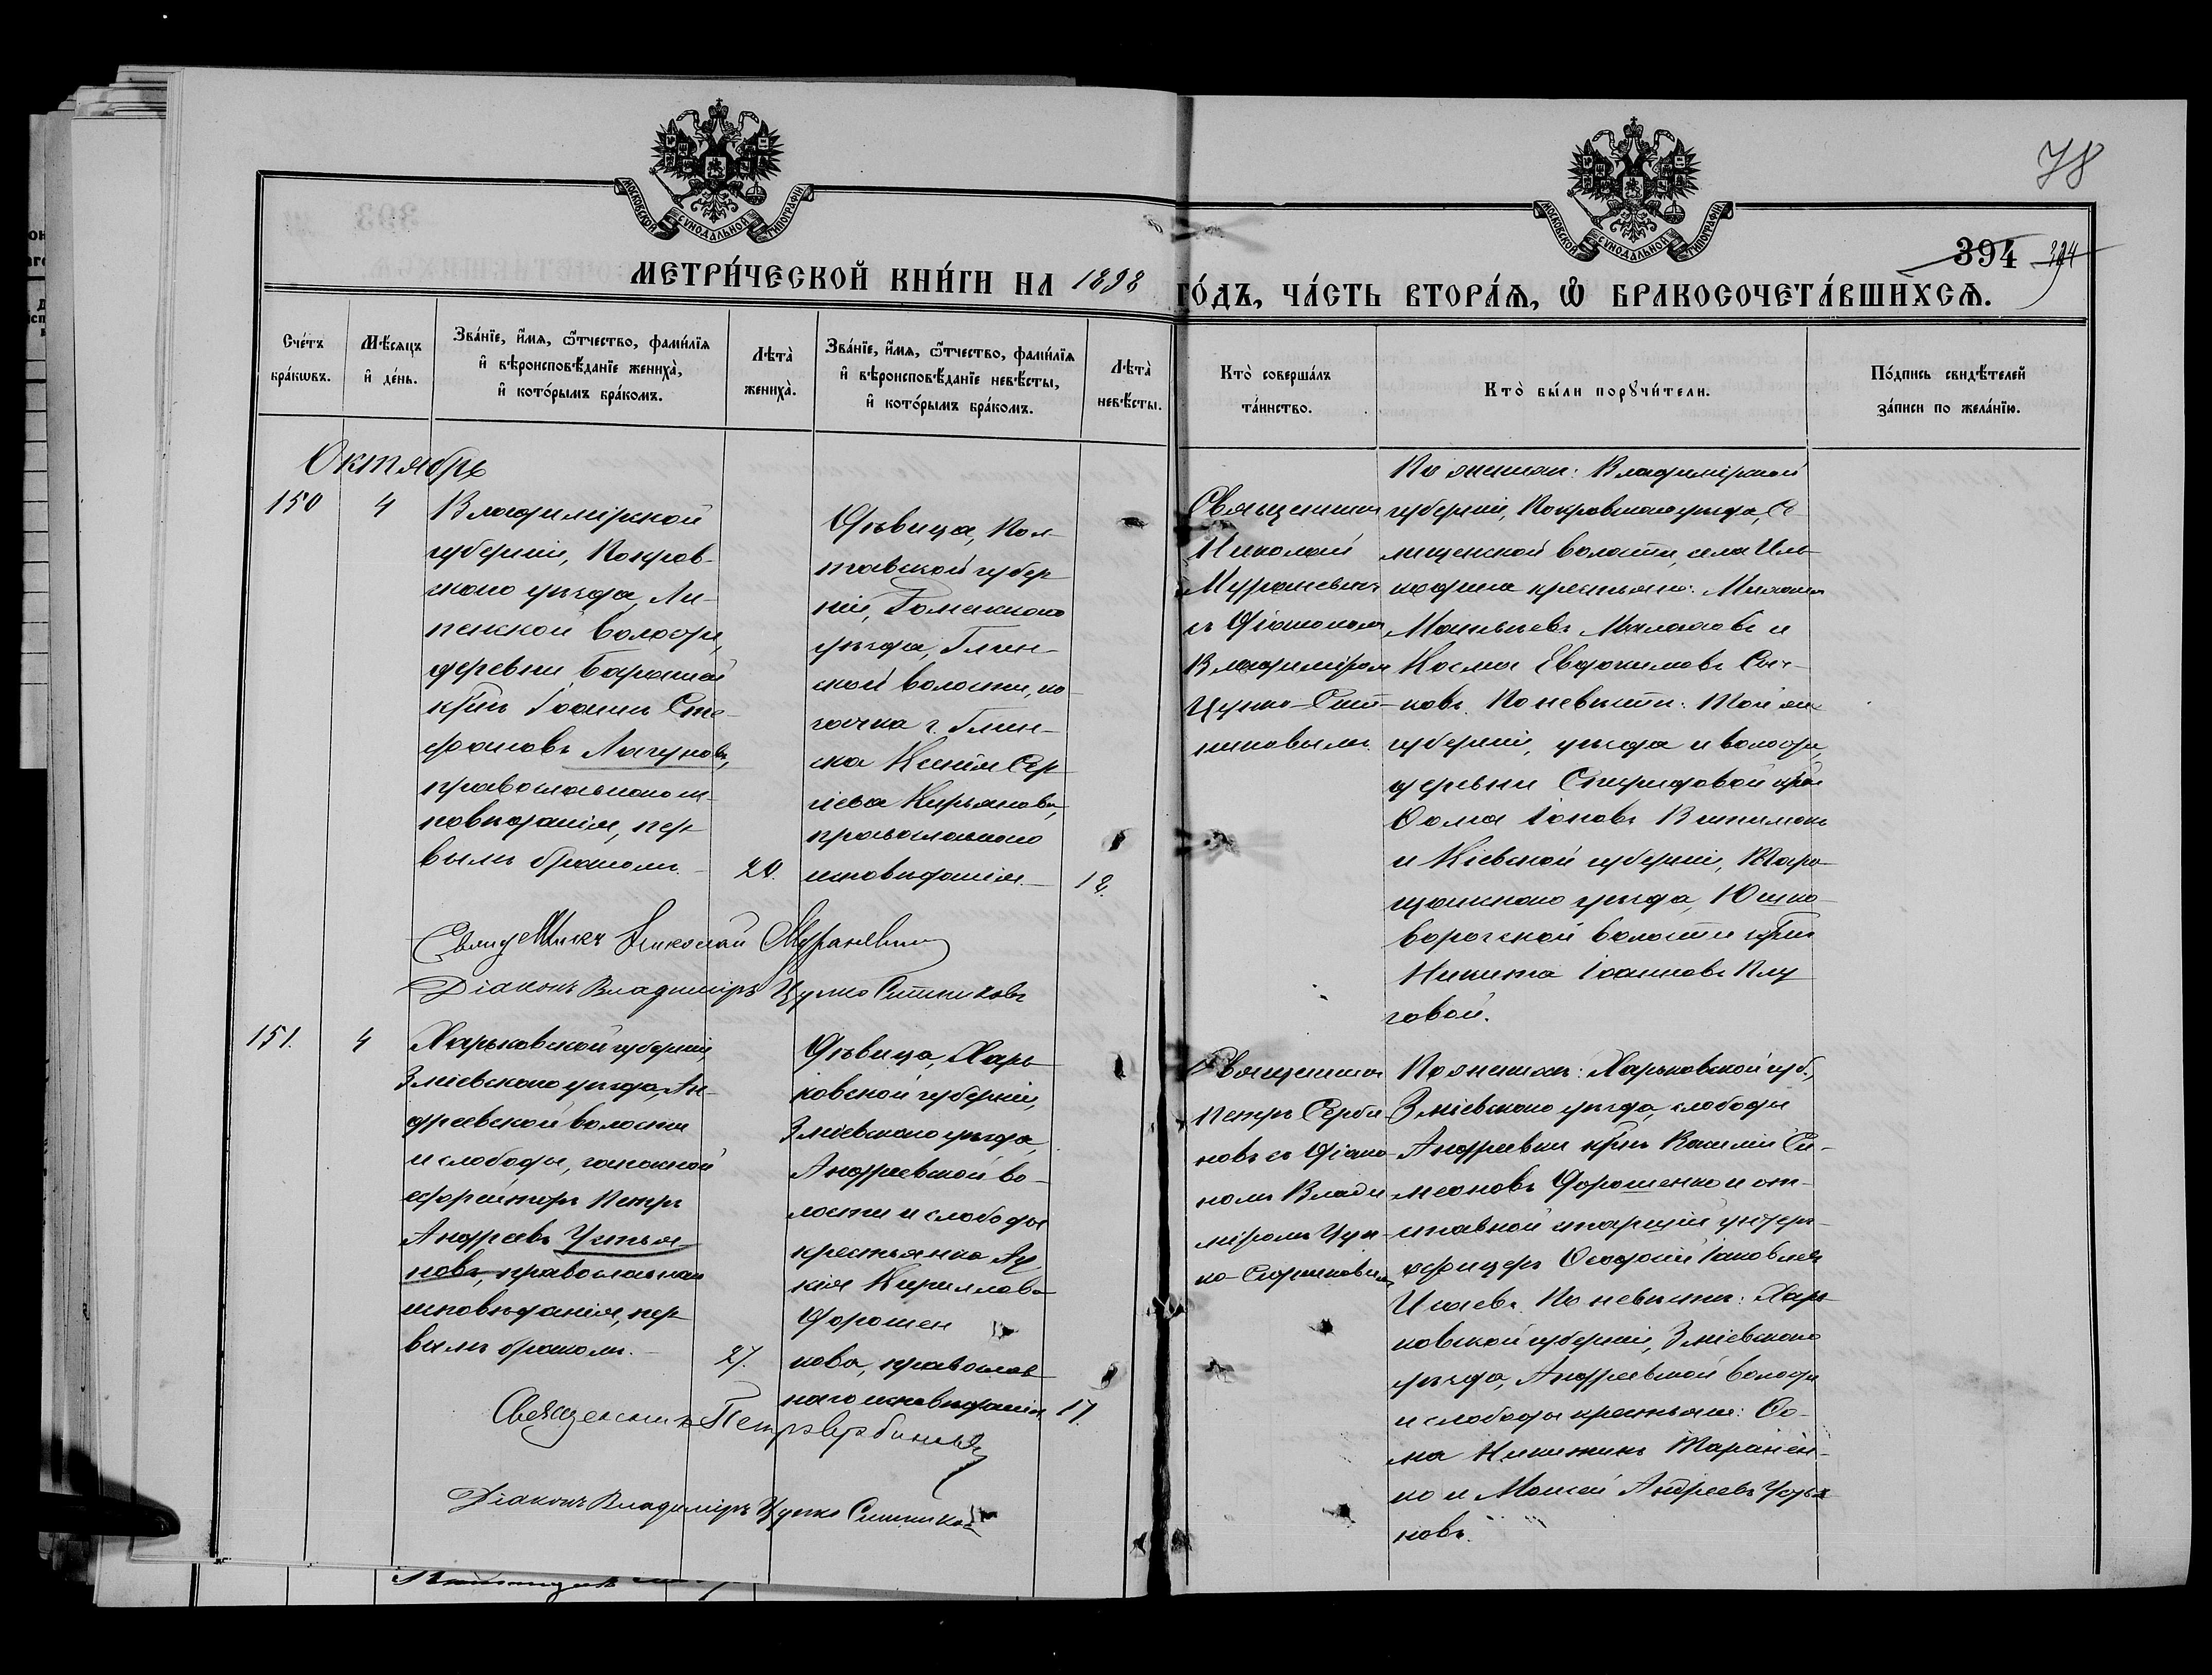 78
МОСКОВСКОЙ СѴНОДАЛЬНОЙ ТИПОГРАФІИ
МОСКОВСКОЙ СѴНОДАЛЬНОЙ ТИПОГРАФІИ
394 394
МЕТРИ́ЧЕСКОЙ КНИ́ГИ НА 1898 ГО́ДЪ, ЧА́СТЬ ВТОРА́Ѧ, Ѡ҆ БРАКОСОЧЕТА́ВШИХСѦ.
Сче́тъ
бра́кѡвъ.
Мѣ́сяцъ
и҆ де́нь.
Зва́нїе, и҆́мя, ѻ҆́тчество, фами́лїя
и҆ вѣроисповѣ́данїе жениха̀,
и҆ кото́рымъ бра́комъ.
Лѣта̀
жениха̀.
Зва́нїе, и҆́мя, ѻ҆́тчество, фами́лїя
и҆ вѣроисповѣ́данїе невѣ́сты,
и҆ кото́рымъ бра́комъ.
Лѣта̀
невѣ́сты.
Кто̀ соверша́лъ
та́инство.
Кто̀ бы́ли порꙋчи́тели.
По́дпись свидѣ́телей
за́писи по жела́нїю.
Октябрь
150
4
Владимірской
губерніи, Покров-
скаго уѣзда, Ли-
пенской волости,
деревни
кр-нъ Іоаннъ Сте-
фановъ Лагуновъ,
православнаго ис-
повѣданія, пер-
вымъ бракомъ.
20.
Дѣвица, Пол-
тавской губер-
ніи, Роменскаго
уѣзда, Глин-
ской волости, ка-
зачка г. Глин-
ска Ксенія Сер-
гіева Кирьянова,
православнаго
исповѣданія.
18.
Священникъ
Николай
Мураневичъ
съ діакономъ
Владиміромъ
Цупко-Сит-
никовымъ.
По женихѣ: Владимірской
губерніи, Покровскаго уѣзда,
волости, села
крестьяне: Михаилъ
и
Косма Евдокимовъ Сыт-
ковъ. По невѣстѣ: Той же
губерніи, уѣзда и волости,
деревни Спиридовой кр-нъ
Ѳома Іоновъ
и Кіевской губерніи, Тара-
щанскаго уѣзда, Юшко-
ворогской волости кр-нъ
Никита Іоанновъ Плу
говой.
Священникъ Николай Мураневичъ
Діаконъ Владиміръ Цупко Ситниковъ
151.
4
Харьковской губерніи
Зміевскаго уѣзда, Ан-
дреевской волости
и слободы, запасной
ефрейторъ Петръ
Андреевъ Устья-
новъ, православнаго
исповѣданія, пер-
вымъ бракомъ.
27.
Дѣвица, Харь-
ковской губерніи,
Зміевскаго уѣзда,
Андреевской во-
лости и слободы
крестьянка Лу
кія Кириллова
Дорошен
кова, православ-
наго исповѣданія.
17.
Священникъ
Петръ Серби-
новъ съ діако-
номъ Влади
міромъ Цуп-
ко-Ситниковымъ
По женихѣ: Харьковской губ.,
Зміевскаго уѣзда, слободы
Андреевки кр-нъ Василій Си-
меоновъ Дорошенко и от-
ставной старшій унтеръ-
офицеръ Ѳеодосій Іаковлевъ
Исаевъ. По невѣстѣ: Харь-
ковской губерніи, Зміевскаго
уѣзда, Андреевской волости
и слободы крестьяне: Ѳо-
ма Никитинъ Таранен-
ко и Моисей Андреевъ Устья
новъ.
Священникъ Петръ Сербиновъ
Діаконъ Владиміръ Цупко Ситниковъ